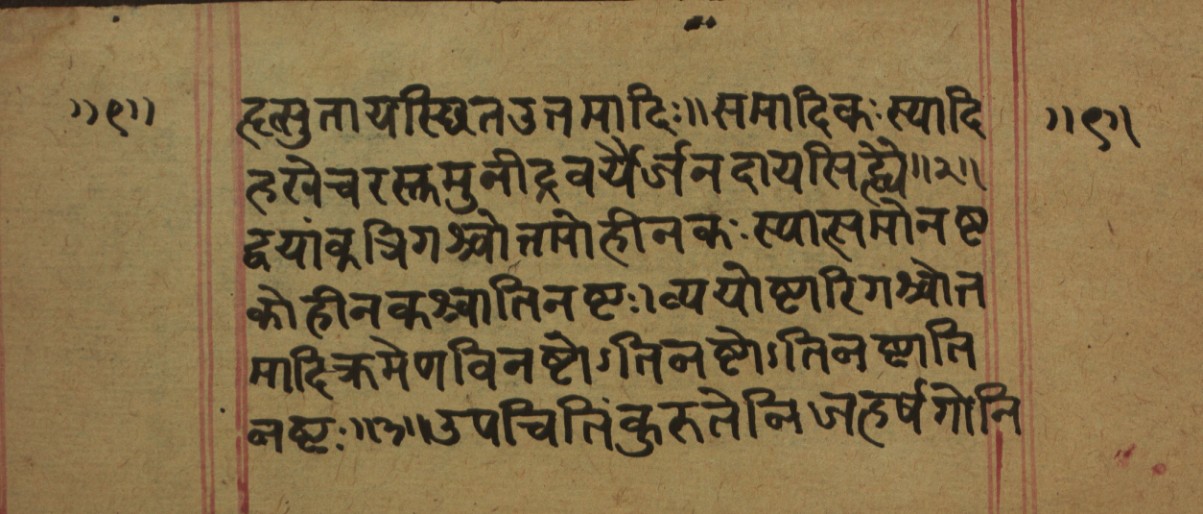 ॥९॥ हृत्सुतायस्थित उत्तमादिः॥समादिकः स्यादि ॥९॥
हखेचरस्तमुनीद्रवर्यैर्जनदायसिद्ध्यै॥२॥
द्वयांकत्रिगश्चोत्तमोहीनकः स्यात्समोनष्ट
कोहीनकश्चातिनष्टः।व्ययोष्टारिगश्चोत्त
मादिक्रमेणविनष्टोऽतिनष्टोऽतिनष्टाति
नष्टः॥३॥उपचितिंकुरुतेनिजहर्षगोनि